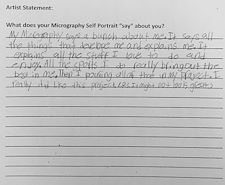 Artist Statement:
What does your Micrography Self Portrait "say" about you?
My Micrography says a bunch about me. It says all
the things that describe me and explains me. It
explains all the stuff I love to do and
enjoy. All the sports I do really bring out the
best in me, then I pouring all of that in my project. I
really did like this project (P.S. I might not look great)